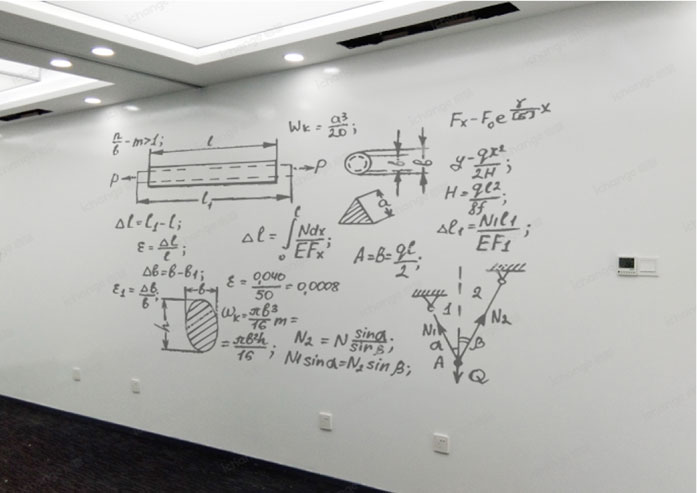 n/б - m>1;
l
P
P
l₁
Wк = a³/20;
a
Fx - F₀e x
y - qx²/2H;
H = ql²/8f;
Δl₁ = N₁l₁/EF₁;
Δl = l₁ - l;
ε = Δl/l;
Δl = ∫₀ˡ Ndx/EFx;
A = B = ql/2;
Δв = в - в₁;
ε₁ = Δв/в;
в
h
ε = 0,040/50 = 0,0008
Wк = πв³/16 m =
= πв²h/16;
N₂ = N sinα/sinβ;
N₁sinα = N₂sinβ;
1
2
N₁
N₂
α
β
A
Q